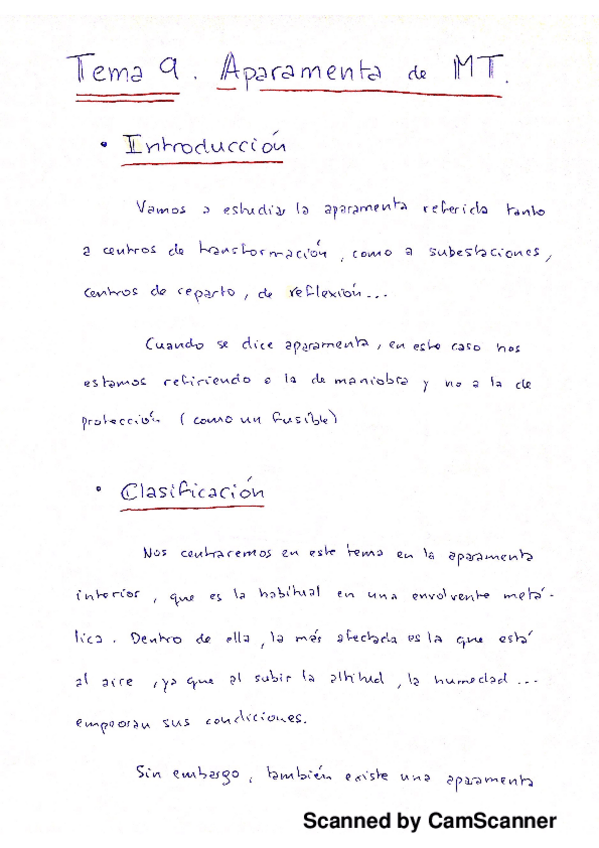 Tema 9. Aparamenta de MT.
• Introducción
Vamos a estudiar la aparamenta referida tanto
a centros de transformación, como a subestaciones,
centros de reparto, de reflexión...
Cuando se dice aparamenta, en este caso nos
estamos refiriendo a la de maniobra y no a la de
protección (como un fusible)
• Clasificación
Nos centraremos en este tema en la aparamenta
interior, que es la habitual en una envolvente metá-
lica. Dentro de ella, la más afectada es la que está
al aire, ya que al subir la altitud, la humedad...
empeoran sus condiciones.
Sin embargo, también existe una aparamenta
Scanned by CamScanner